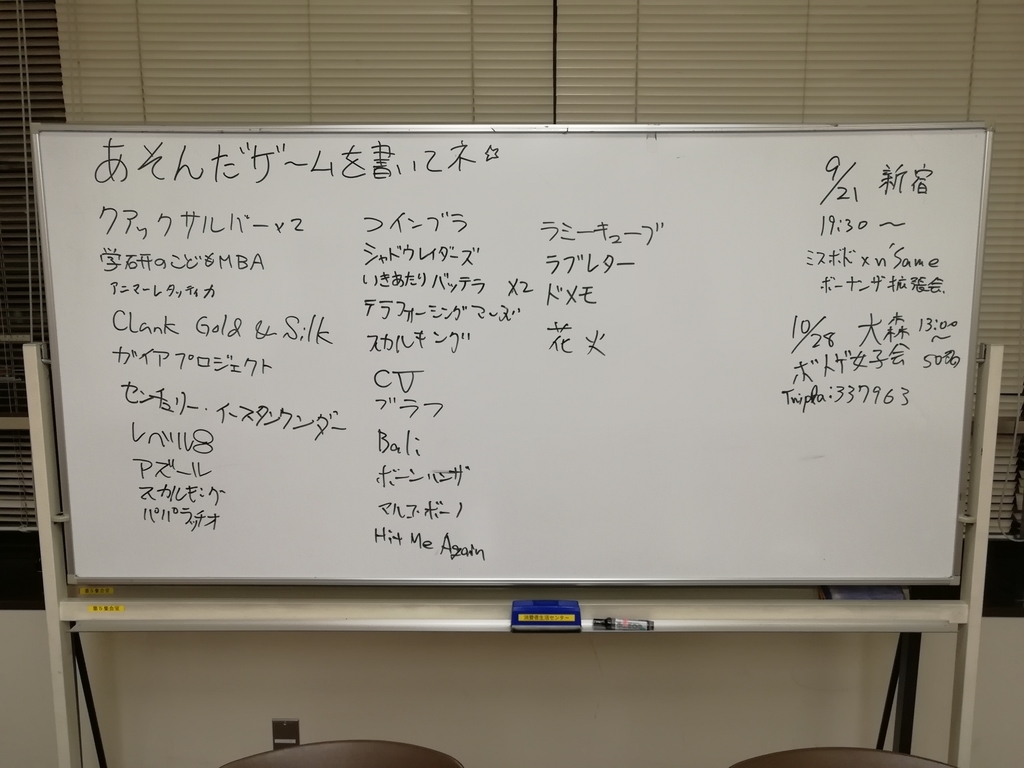 あそんだゲームを書いてネ☆
クアックサルバー×2
学研のこどもMBA
アニマーレタッティカ
Clank Gold & Silk
ガイアプロジェクト
センチュリー・イースタンワンダー
レベル8
アズール
スカルキング
パパラッチオ
コインブラ
シャドウレイダーズ
いきあたりバッテラ ×2
テラフォーミングマーズ
スカルキング
CV
ブラフ
Bali
ボーンハンザ
マルコ・ボーノ
Hit Me Again
ラミーキューブ
ラブレター
ドメモ
花火
9/21 新宿
19:30 〜
ミスボド×n'Same
ボーナンザ拡張会.
10/28 大森 13:00〜
ボドゲ女子会 50名
Twipla:337963
第5集会室
第5集会室
消費者生活センター